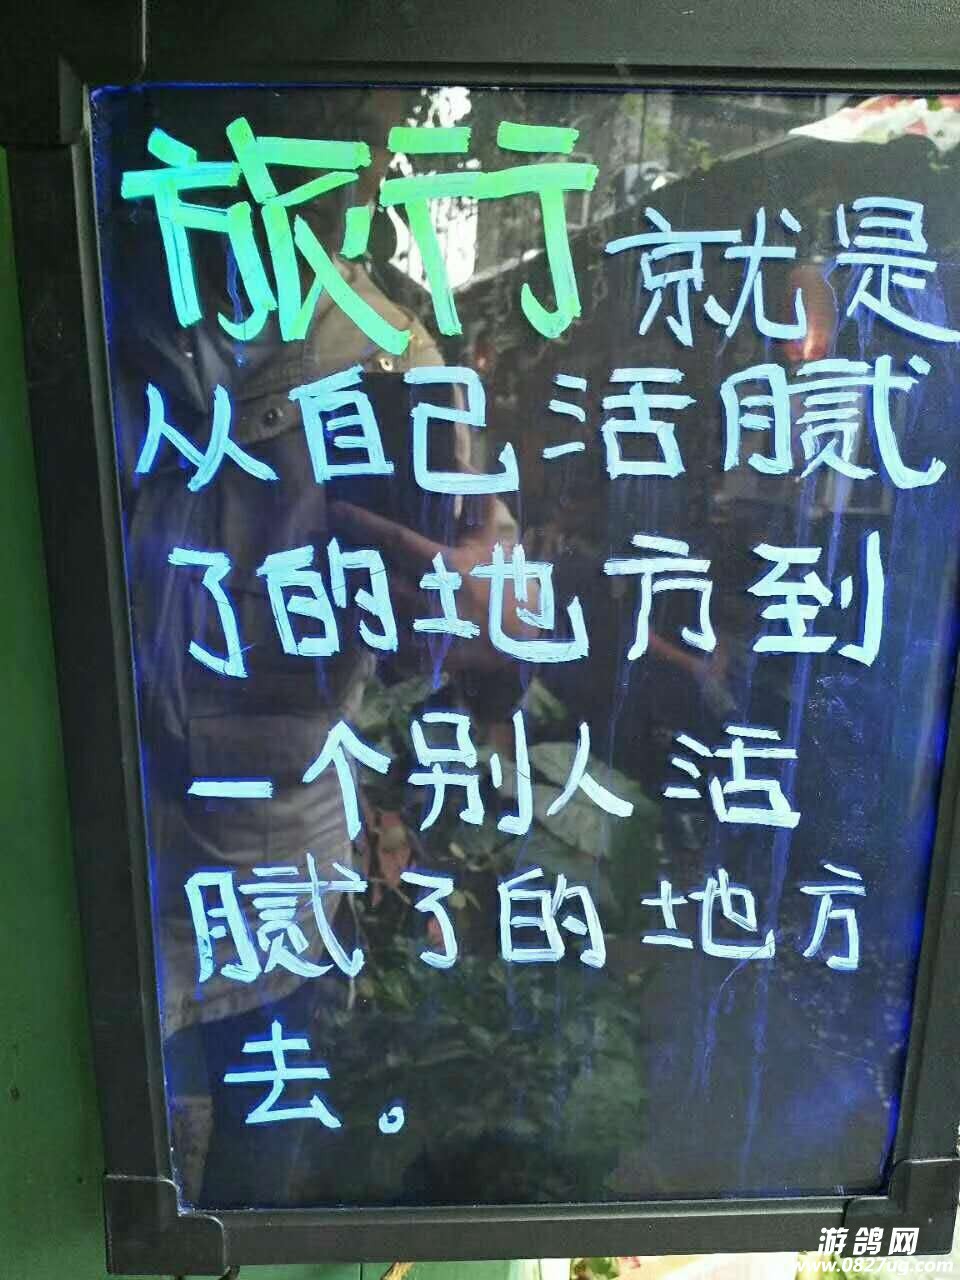 旅行就是
从自己活腻
了的地方到
一个别人活
腻了的地方
去。
游鸽网
www.0827ug.com